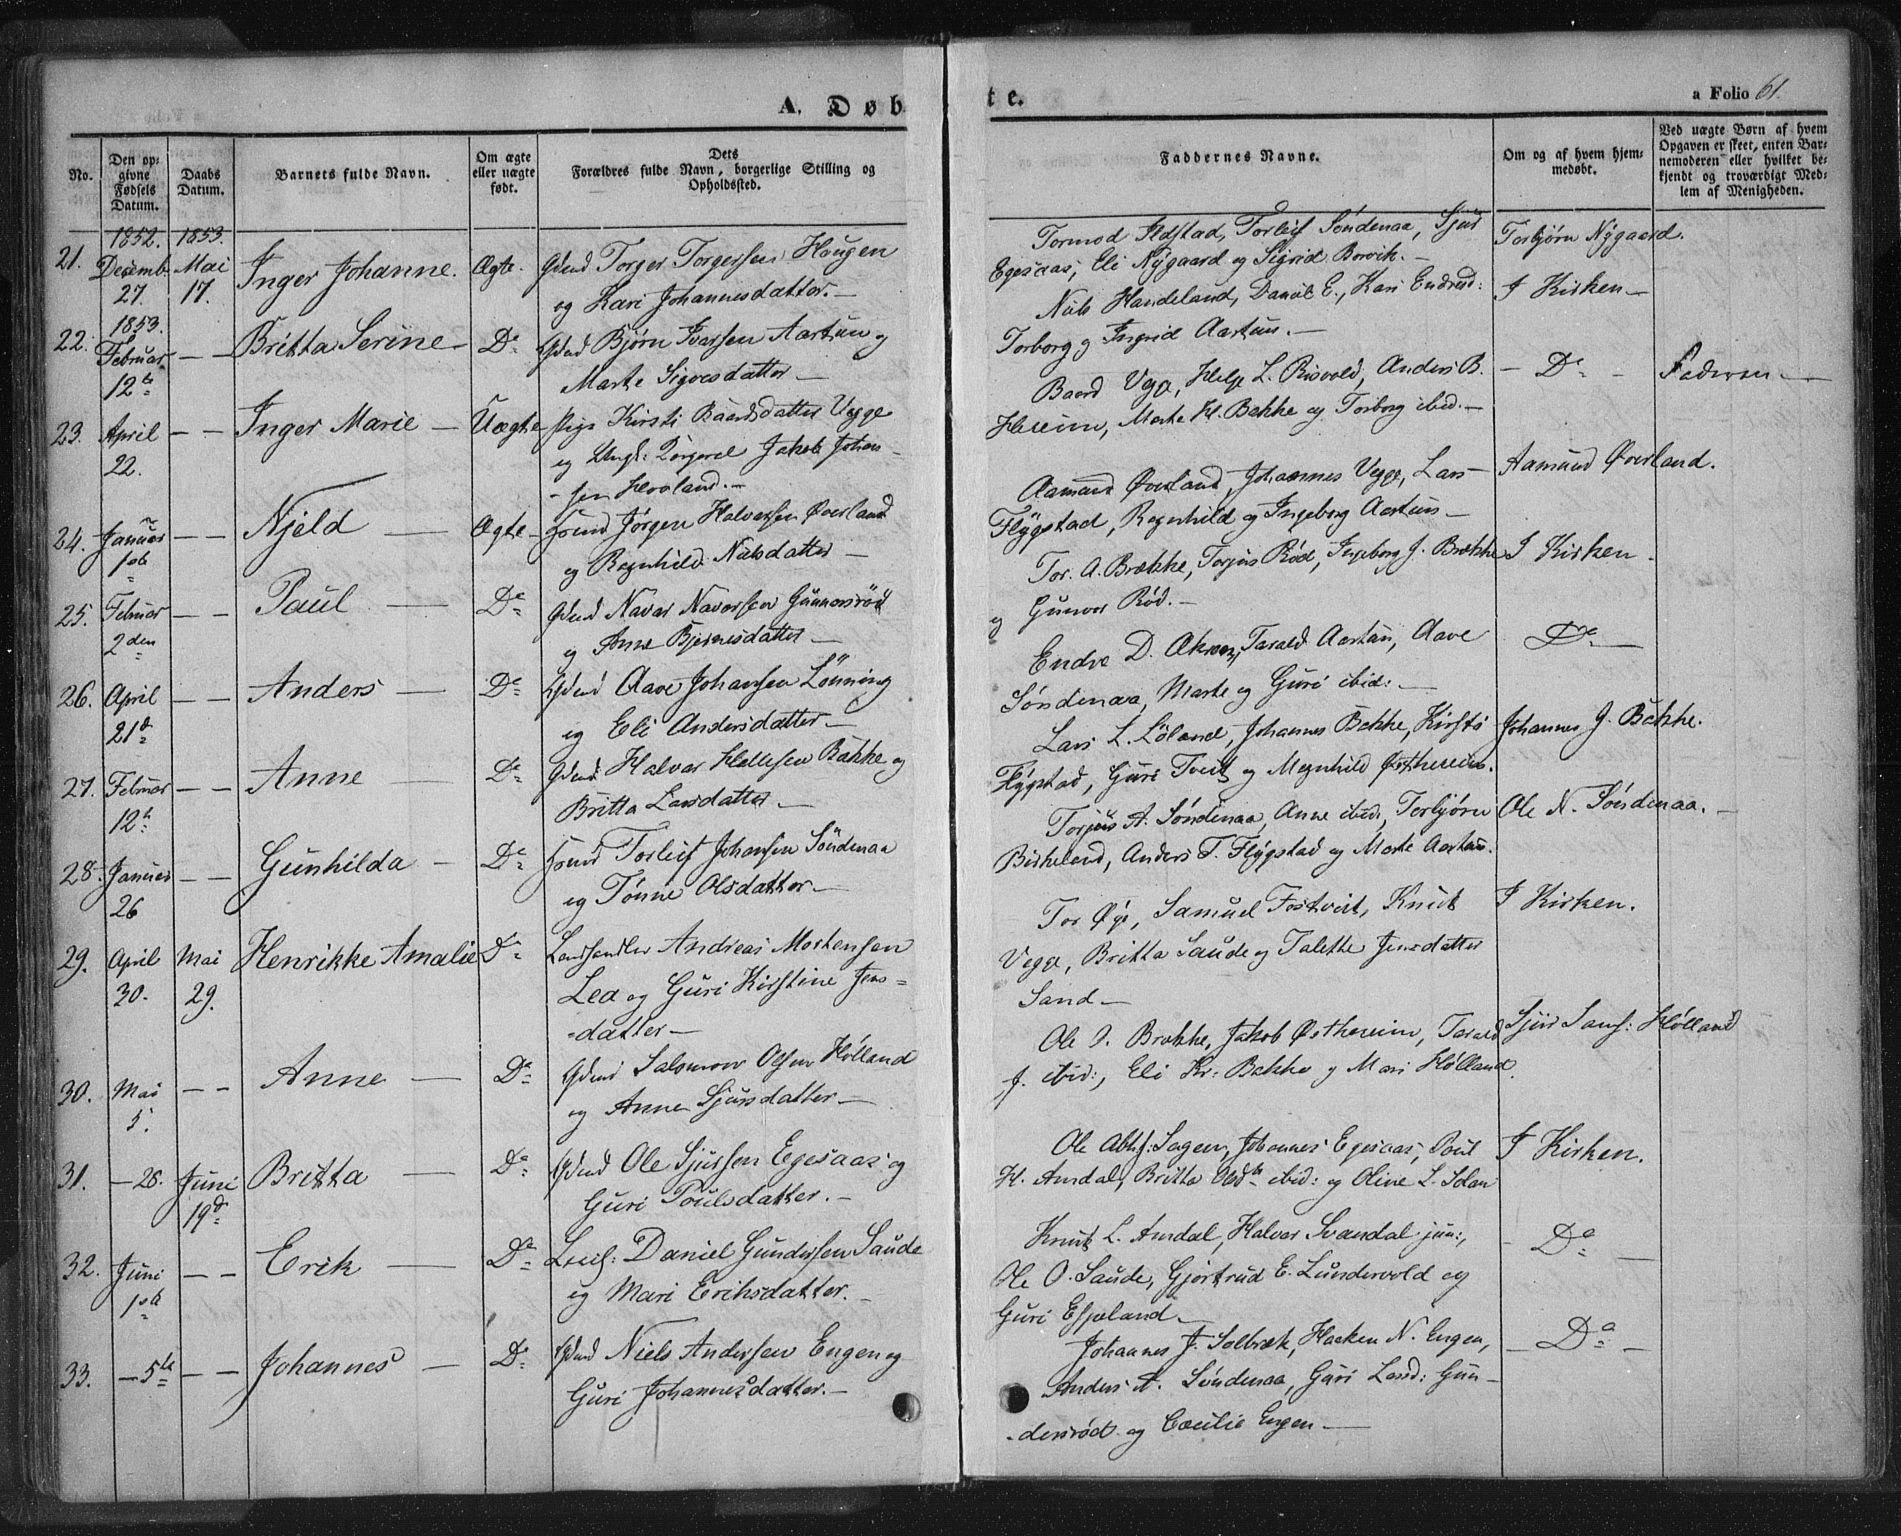 A. Døbte.
a Folio 61.
No.
Den opgivne Fødsels Datum.
Daabs Datum.
Barnets fulde Navn.
Om ægte eller uægte født.
Dets Forældres fulde Navn, borgerlige Stilling og Opholdssted.
Faddernes Navne.
Om og af hvem hjemmedøbt.
Ved uægte Børn af hvem Opgaven er skeet, enten Barnemoderen eller hvilket bekjendt og troværdigt Medlem af Menigheden.
1852. 1853.
21. Desemb. 27. Mai 17. Inger Johanne. Ægte. Gdmd Torger Torgersen Haugen
og Kari Johannesdatter.—
Tormod Fedstad, Torleif Søndenaa, Sjur
Egesaas, Eli Nygaard og Sigrid Borvik.—
Torbjørn Nygaard.
1853.
22. Februar 12te — — Britta Serine — Do Gdmd Bjørn Ivarsen Aartun og
Marte Sigvesdatter —
Nils Handeland, Daniel E., Kari Endresd:
Torborg og Ingrid Aartun.—
I Kirken —
23. April 22. — — Inger Marie — Uægte Pige Kirsti Baardsdatter Vegge
og Ungk: Jakob Johan-
-sen Hovland.—
Baard Vegge, Helge L. Risvold, Anders B.
Hereim, Marte H. Bakke og Torborg ibid.—
— Do — Faderen —
24. Januar 1ste — — Njeld — Ægte — Jørgen Halvorsen Øverland
og Ragnhild Nilsdatter —
Aamund Øverland, Johannes Vegge, Lars
Flygstad, Ragnhild og Ingeborg Aartun —
Aamund Øverland.
25. Februar 2den — — Paul — Do Gdmd Navar Navarsen Gunnersrød
og Anne Bjørnesdatter —
Tor. A. Brække, Torjus Rød, Ingeborg J. Brække
og Gunvor Rød.—
I Kirken —
26. April 21de — — Anders — Do Gdmd Aave Johansen Lönning
og Eli Andersdatter —
Endre D. Akren, Tarald Aartun, Aave
Søndenaa, Marte og Guri ibid: —
Do —
27. Februar 12te — — Anne — Do Gdmd Halvor Hellesen Bakke og
Britta Larsdatter —
Lars L. Löland, Johannes Bakke, Kirsti
Flygstad, Guri Tveit og Magnhild Østhereim.
Johannes J. Bakke.
28. Januar 26 — — Gunhilda — Do Torleif Johansen Söndenaa
og Tönne Olsdatter —
Torjus A. Søndenaa, Anne ibid:, Torbjørn
Birkeland, Anders T. Flygstad og Marte Aartun.
Ole N. Søndenaa. —
29. April 30. Mai 29. Henrikke Amalie Do Landhandler Andreas Mortensen
Lea og Guri Kirstine Jens-
-datter —
Tor Øye, Samuel Fostveit, Knut
Vegge, Britta Saude og Talette Jensdatter
Sand —
I Kirken.
30. Mai 5. — — Anne — Do Gdmd Salomon Olsen Hölland
og Anne Sjursdatter —
Ole O. Brække, Jakob Østhereim, Tarald
J. ibid:, Eli Kr: Bakke og Mari Hölland.
Sjur Hölland
31. — 28. Juni 19de Britta — Do Gdmd Ole Sjursen Egesaas og
Guri Poulsdatter.—
Ole Sagen, Johannes Egesaas, Poul
H. Amdal, Britta Olsdtr ibid: og Oline L.
I Kirken.
32. Juni 1ste — — Erik — Do Daniel Gundersen Saude
og Mari Eriksdatter.—
Knut L. Amdal, Halvor Svandal jun:,
Ole O. Saude, Gjørtrud E. Lundervold og
Guri Espeland —
— Do —
33. — 5te — — Johannes — Do Gdmd Niels Andersen Engen og
Guri Johannesdatter.—
Johannes J. Solbræk, Haaken N. Engen,
Anders A. Søndenaa, Guri Larsd: Gun-
-dersrød og Cæcilie Engen —
— Do —